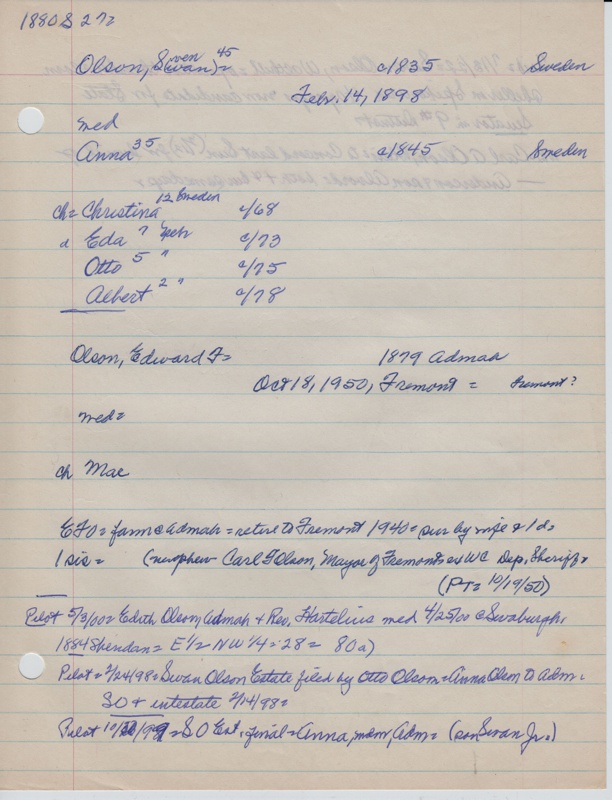 1880 S 272
Olson, S(wan)= ven 45 c/1835 Sweden
Febr. 14, 1898
med
Anna 35 c/1845 Sweden
ch= Christina 12 Sweden c/68
d Eda 7 Nebr c/73
Otto 5 " c/75
Albert 2 " c/78
Olson, Edward F= 1879 Admah
Oct 18, 1950, Fremont = Fremont?
med=
ch Mae
EFO= farm c Admah = retire to Fremont 1940= sur by wife & 1 d,
1 sis= (nephew Carl F Olson, Mayor of Fremont & ex WC Dep. Sheriff,
(PT= 10/19/50)
Pilot 5/3/00= Edith Olson, Admah + Rev. Hartelius med 4/25/00 c Swaburgh,
1884 Sheridan= E 1/2 NW 1/4 = 28 = 80 a)
Pilot= 2/24/98= Swan Olson Estate filed by Otto Olson= Anna Olson to Adm.
SO + intestate 2/14/98=
Pilot 10/ /99= S O Est, final= Anna, Adm= (son Swan Jr.)